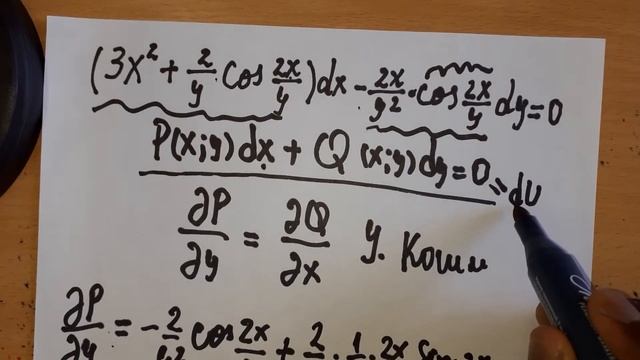 (3x² + 2/y cos 2x/y)dx - 2x/y² · cos 2x/y dy = 0
P(x;y)dx + Q(x;y)dy = 0 = dU
∂P/∂y = ∂Q/∂x У. Коши
∂P/∂y = - 2/y² cos 2x/y + 2/y · 1/y² · 2x